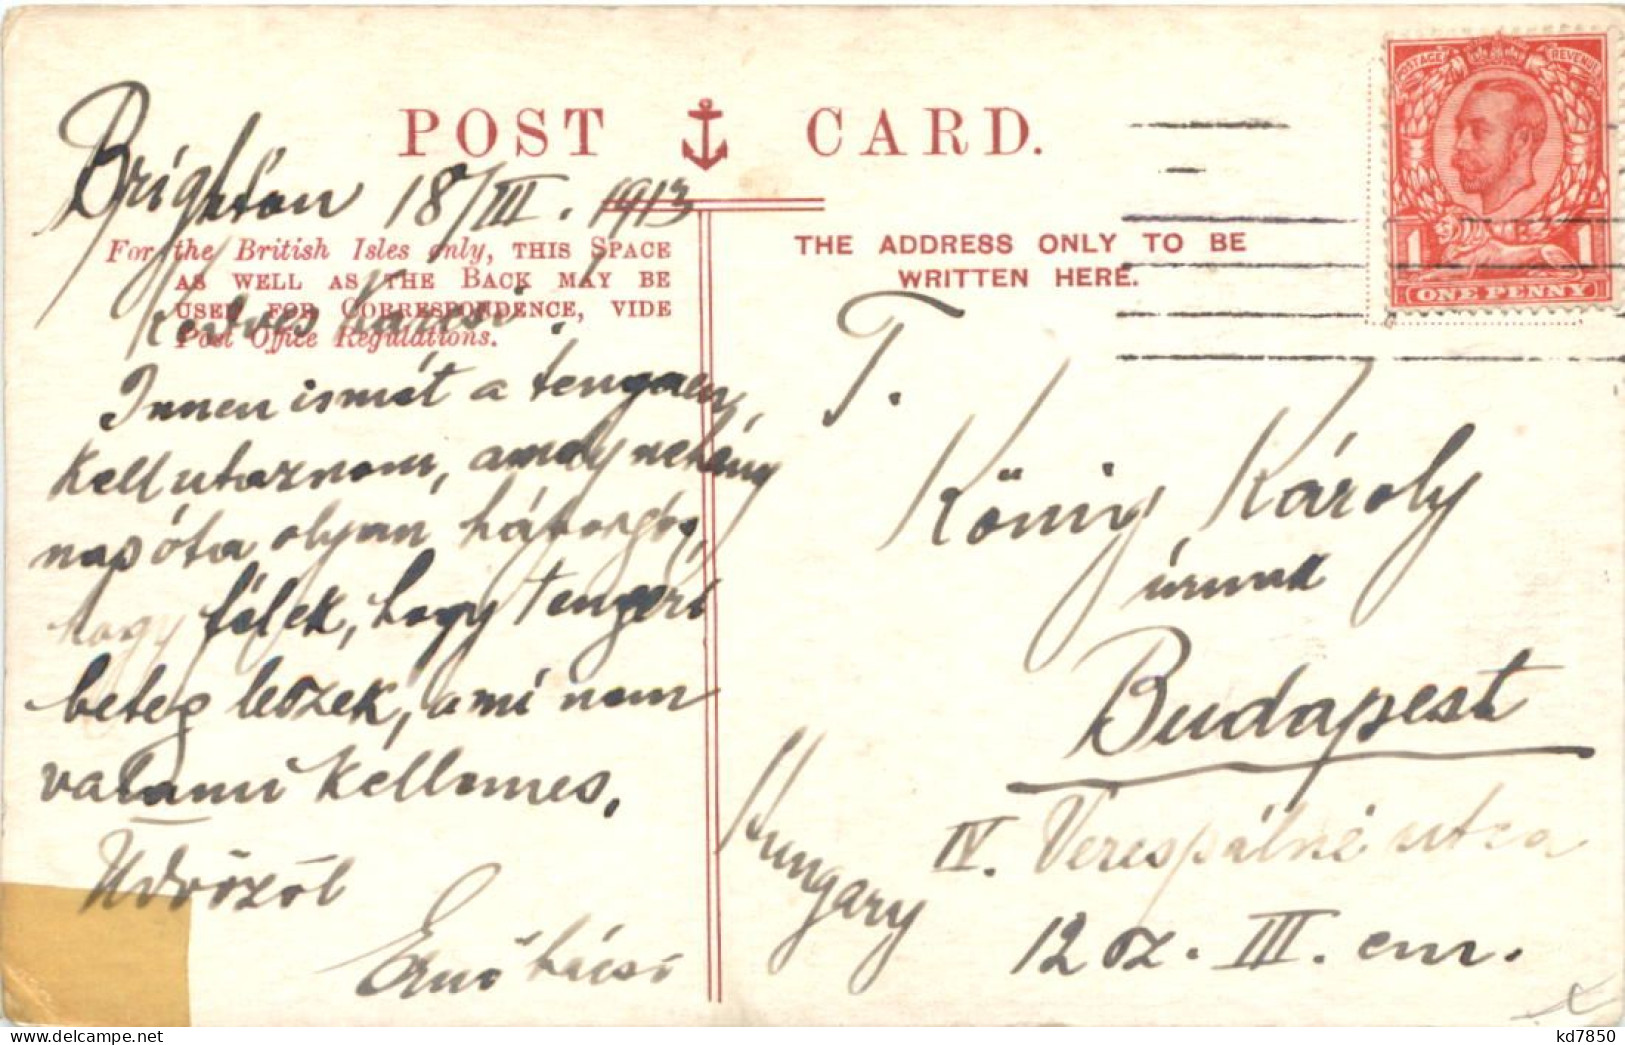 POST CARD.
Brighton 18/III. 1913
For the British Isles only, THIS SPACE
AS WELL AS THE BACK MAY BE
USED FOR CORRESPONDENCE, VIDE
Post Office Regulations.
Kedves
Innen ismét a tengeren
kell utaznom, amely nehány
nap óta olyan háborgós,
hogy félek, hogy tengeri
beteg leszek, ami nem
valami kellemes.
Üdvözöl
Ernő bácsi
THE ADDRESS ONLY TO BE
WRITTEN HERE.
T.
König Károly
úrnak
Budapest
IV. Verespálné utca
12 sz. III. em.
Hungary
POSTAGE REVENUE
1 1
ONE PENNY
kd7850